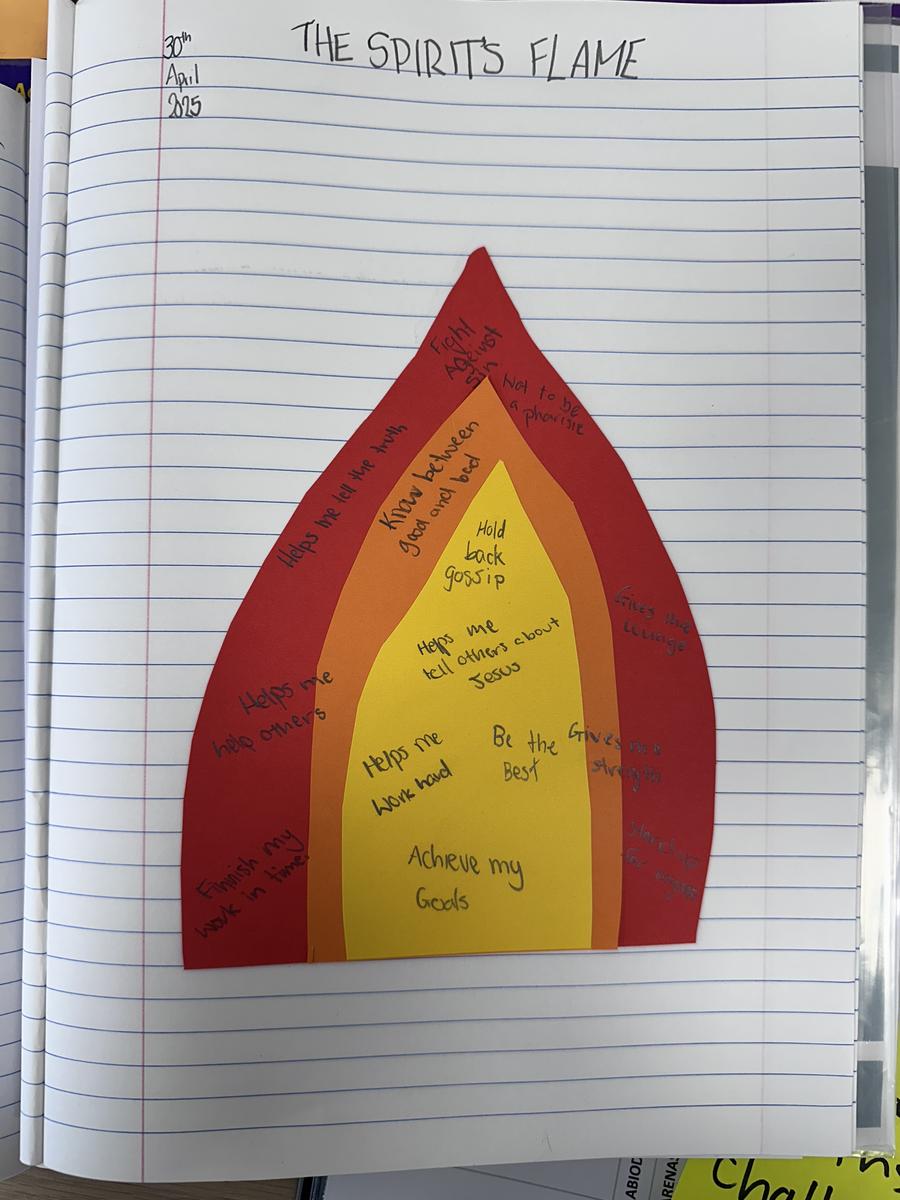 30th
April
2025
THE SPIRIT'S FLAME
Fight
Against
sin
Not to be
a pharisie
Helps me tell the truth
Know between
good and bad
Hold
back
gossip
Gives me
Helps me
tell others about
Jesus
Helps me
help others
Helps me
Work hard
Be the
Best
Gives me
strength
Finnish my
work in time
Achieve my
Goals
for
ABIOD
ARENAS
Chall